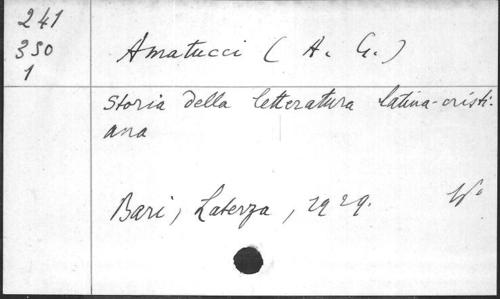 241
350
1
Amatucci (A. G.)
Storia della letteratura latina-cristi-
ana
Bari, Laterza, 1929.